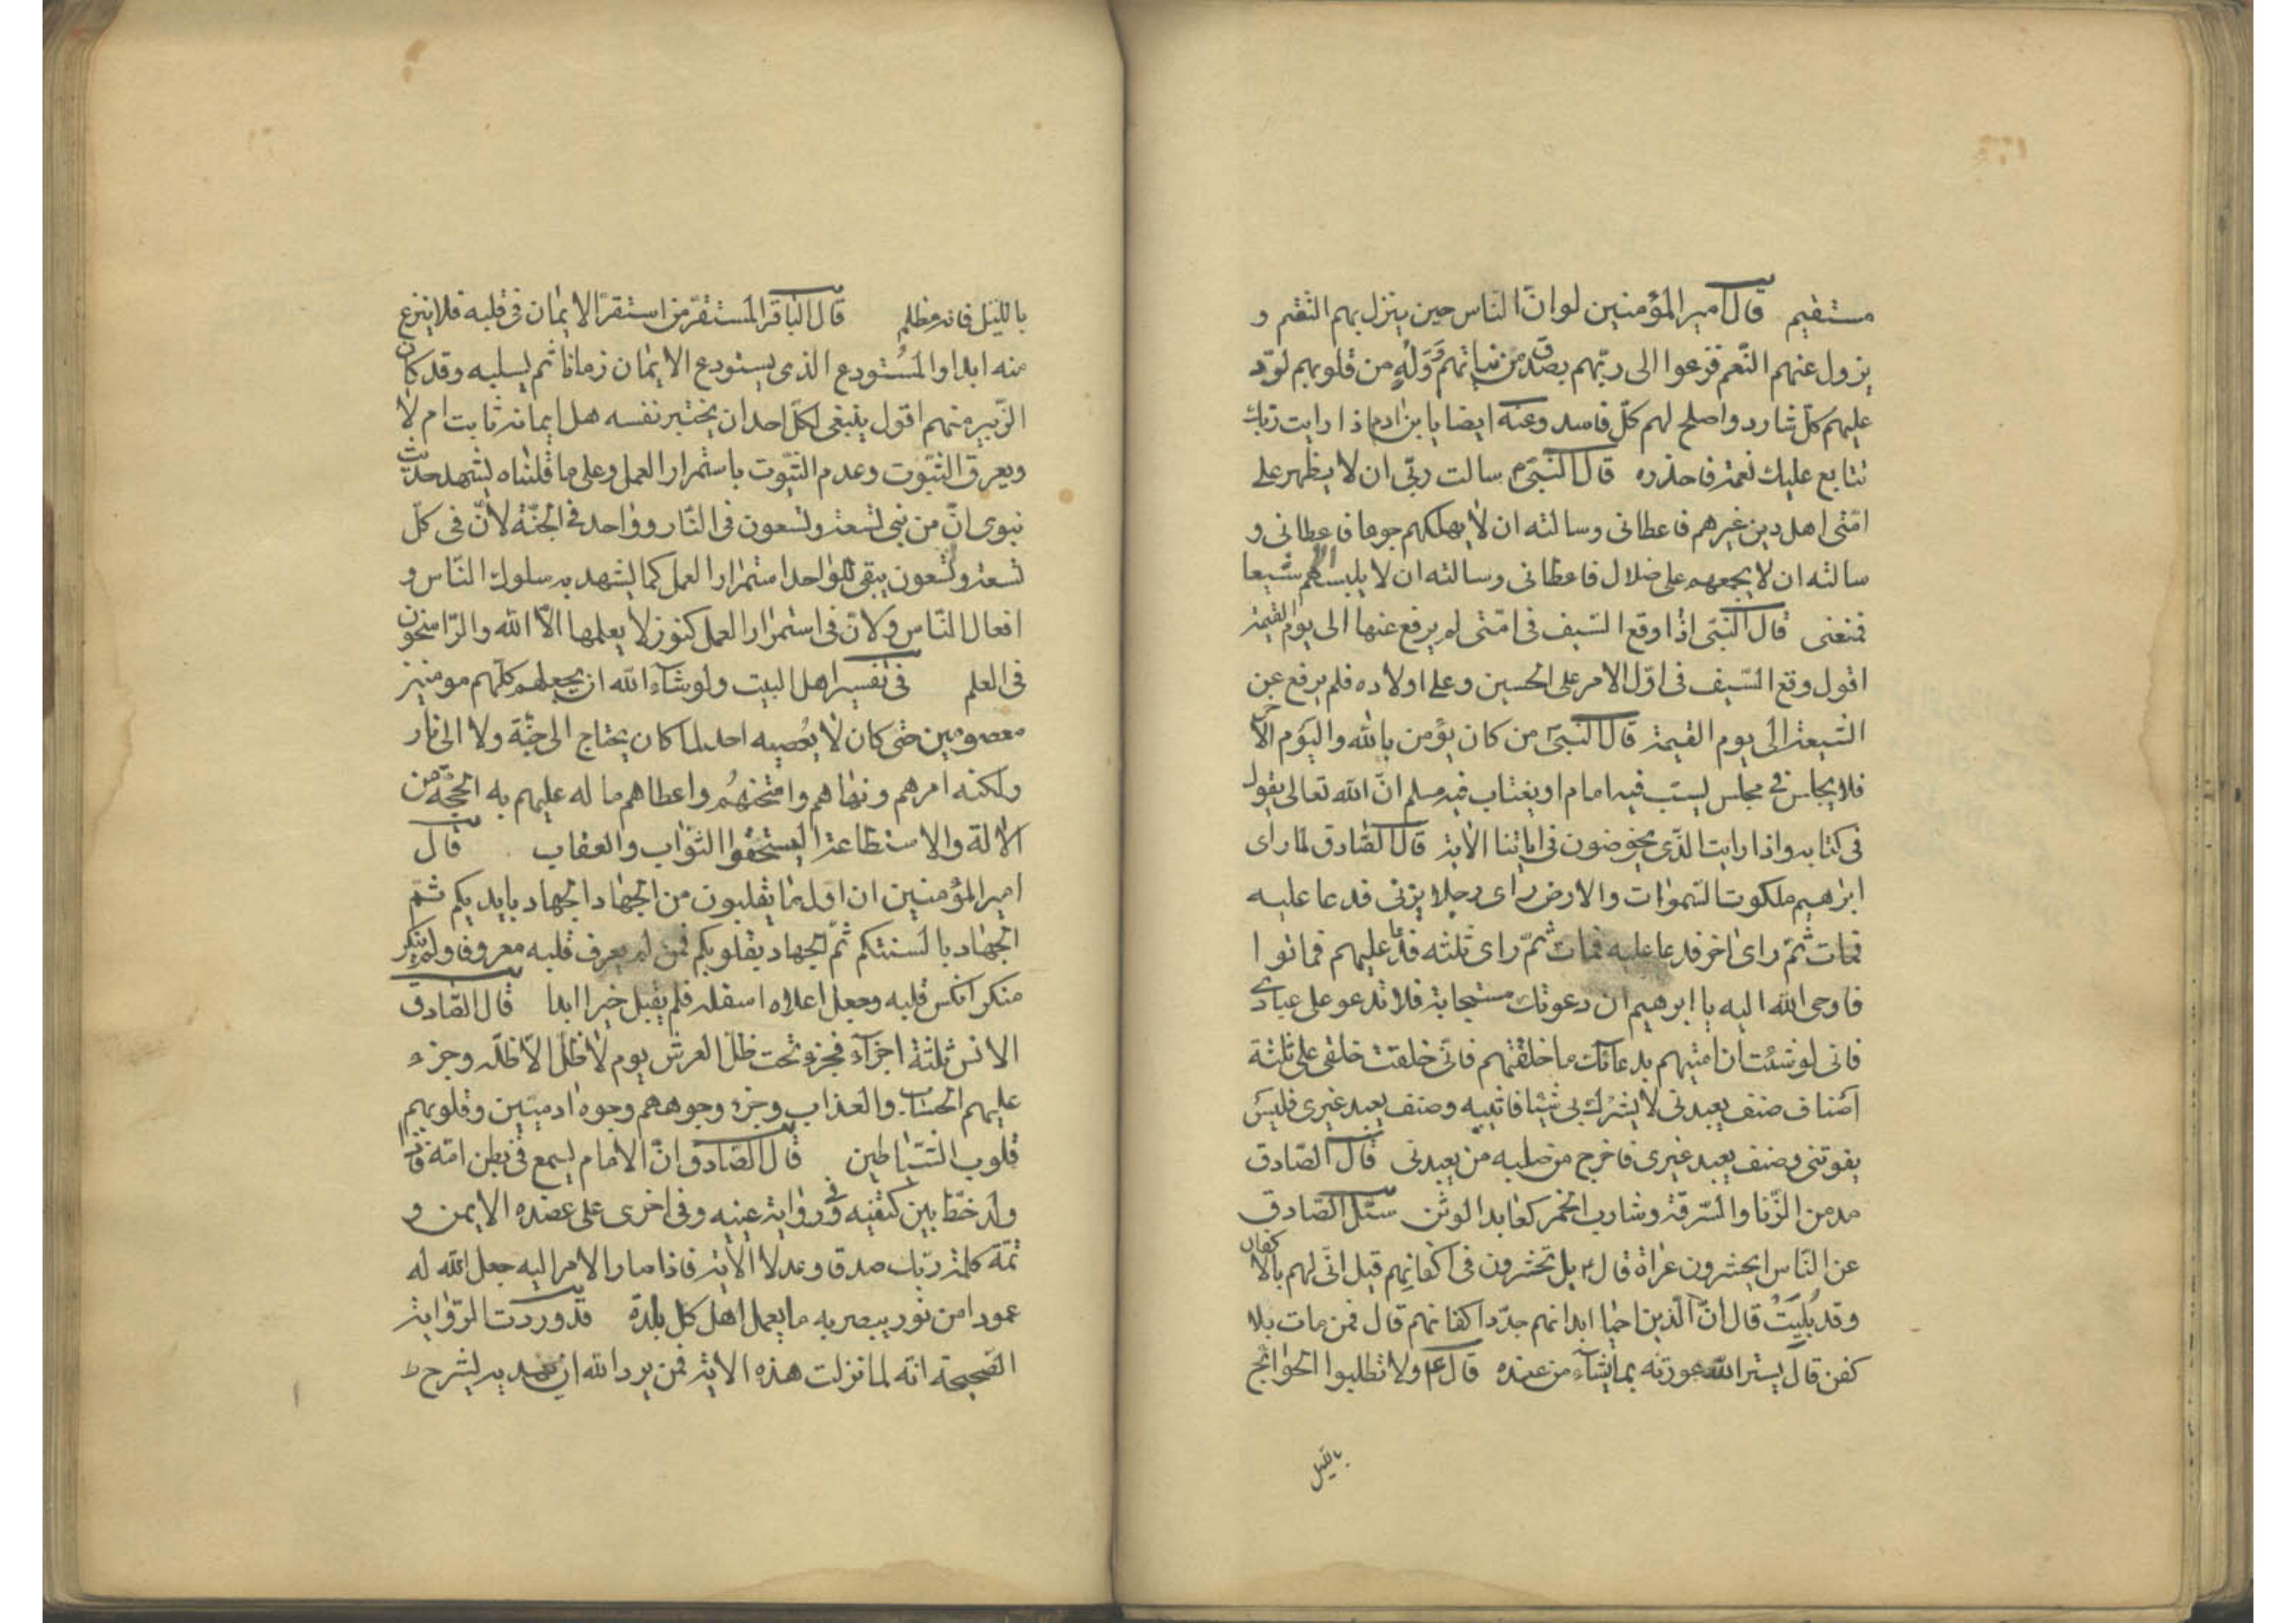 مستقيم قال امير المؤمنين لو انّ الناس حين ينزل بهم النقم و
يزول عنهم النّعم فزعوا الى ربّهم بصدق من نياتهم وَوَلَهٍ من قلوبهم لردّ
عليهم كلّ شارد واصلح لهم كلّ فاسد وعنه ايضا يا بن ادم اذا رايت ربّك
تتابع عليك نعمه فاحذره قال النّبىّ سالت ربّى ان لا يظهر على
امّتى اهل دين غيرهم فاعطانى وسالته ان لا يهلكهم جوعا فاعطانى و
سالته ان لا يجمعهم على ضلال فاعطانى وسالته ان لا يلبسهم شيعا
فمنعنى قال النّبىّ اذا وقع السّيف فى امّتى لم يرفع عنها الى يوم القيمة
اقول وقع السّيف فى اوّل الامر على الحسين وعلى اولاده فلم يرفع عن
الشّيعة الى يوم القيمة قال النّبىّ من كان يؤمن بالله واليوم الاخر
فلا يجلس فى مجلس يسبّ فيه امام او يغتاب فيه مسلم انّ الله تعالى يقول
فى كتابه واذا رايت الّذى يخوضون فى اياتنا الاية قال الصّادق لمّا راى
ابرهيم ملكوت السّموات والارض راى رجلا يزنى فدعا عليه
فمات ثمّ راى اخر فدعا عليه فمات ثمّ راى ثلثه فدعا عليهم فماتوا
فاوحى الله اليه يا ابرهيم ان دعوتك مستجابة فلا تدعو على عبادى
فانى لو شئت ان اميتهم بدعائك ما خلقتهم فانّى خلقت خلقى على ثلثة
اصناف صنف يعبدنى لا يشرك بى شيئا فاثيبه وصنف يعبد غيرى فليس
يفوتنى وصنف يعبد غيرى فاخرج من صلبه من يعبدنى قال الصّادق
مدمن الزّنا والسّرقة وشارب الخمر كعابد الوثن سئل الصّادق
عن النّاس ايحشرون عراة قال بل تحشرون فى اكفانهم قيل انّى لهم بالاكفان
وقد بُلِيَتْ قال انّ الّذين احيا ابدانهم جدّد اكفانهم قال فمن مات بلا
كفن قال يستر الله عورته بما يشاء من عنده قال ولا تطلبوا الحوائج
بالليل
بالليل فانه مظلم قال الباقر المستقرّ من استقرّ الايمان فى قلبه فلا ينزع
منه ابدا والمُستودع الذى يستودع الايمان زمانا ثم يسلبه وقد كان
الزّبير منهم اقول ينبغى لكلّ احد ان يختبر نفسه هل ايمانه ثابت ام لا
ويعرف الثبّوت وعدم الثبّوت باستمرار العمل وعلى ما قلناه يشهد حديث
نبوى انّ من نبى تسعة وتسعون فى النّار وواحد فى الجنّة لانّ فى كلّ
تسعة وتسعون يبقى للواحد استمرار العمل كما يشهد به سلوك النّاس و
افعال النّاس ولانّ فى استمرار العمل كنوز لا يعلمها الاّ الله والرّاسخون
فى العلم فى تفسير اهل البيت ولو شاء الله ان يجعلهم كلّهم مومنين
معصومين حتى كان لا يُعصيه احد لما كان يحتاج الى جنّة ولا الى نار
ولكنه امرهم ونهاهم وامتحنهُم واعطاهم ما له عليهم به الحجّة من
الالة والاستطاعة ليستحقوا الثواب والعقاب قال
امير المؤمنين ان اوّل ما تقلبون من الجهاد الجهاد بايديكم ثمّ
الجهاد بالسنتكم ثمّ الجهاد بقلوبكم فمن لم يعرف قلبه معروفا ولم ينكر
منكر انكس قلبه وجعل اعلاه اسفله فلم يقبل خيرا ابدا قال الصّادق
الانس ثلثة اجزآء فجزء تحت ظلّ العرش يوم لا ظلّ الاّ ظلّه وجزء
عليهم الحساب والعذاب وجزء وجوههم وجوه ادميّين وقلوبهم
قلوب الشّياطين قال الصّادق انّ الامام ليسمع فى بطن امّه فاذا
ولد خطّ بين كتفيه وفى رواية عينيه وفى اخرى على عضده الايمن و
تمّة كلمة ربّك صدقا وعدلا الاية فاذا صار الامر اليه جعل الله له
عمودا من نور يبصر به ما يعمل اهل كل بلدة قد وردت الرّواية
الصّحيحة انّه لما نزلت هذه الاية فمن يرد الله ان يهديه يشرح